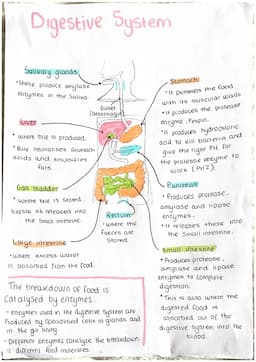 Digestive System
Salivary glands
• these produce amylase
enzymes in the saliva
Gullet
(oesophagus)
Stomach
• It pummels the food
with its muscular walls.
• It produces the protease
enzyme, Pepsin.
• It produces hydrochloric
acid to kill bacteria and
give the right PH for
the protease enzyme to
work (PH2).
Liver
• where bile is produced.
• Bile neutralises stomach
acids and emulsifies
fats.
Gall bladder
• where bile is stored,
before its released into
the small intestine.
Pancreas
• Produces protease,
amylase and lipase
enzymes.
• It releases these into
the small intestine.
Rectum
• where the
faeces are
stored.
Large intestine
• where excess water
is absorbed from the food.
Small intestine
• Produces protease,
amylase and lipase
enzymes to complete
digestion.
• This is also where the
digested food is
absorbed out of the
digestive system into the
blood.
The breakdown of food is
Catalysed by enzymes.
• enzymes used in the digestive system are
Produced by specialised cells in glands and
in the gut lining
• Different enzymes catalyse the breakdown
of different food molecules.